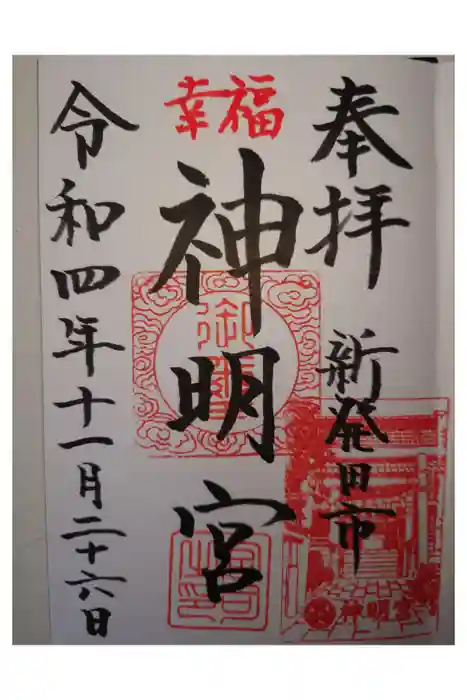 奉拝
新発田市
幸福
神明宮
令和四年十一月二十六日
神明宮